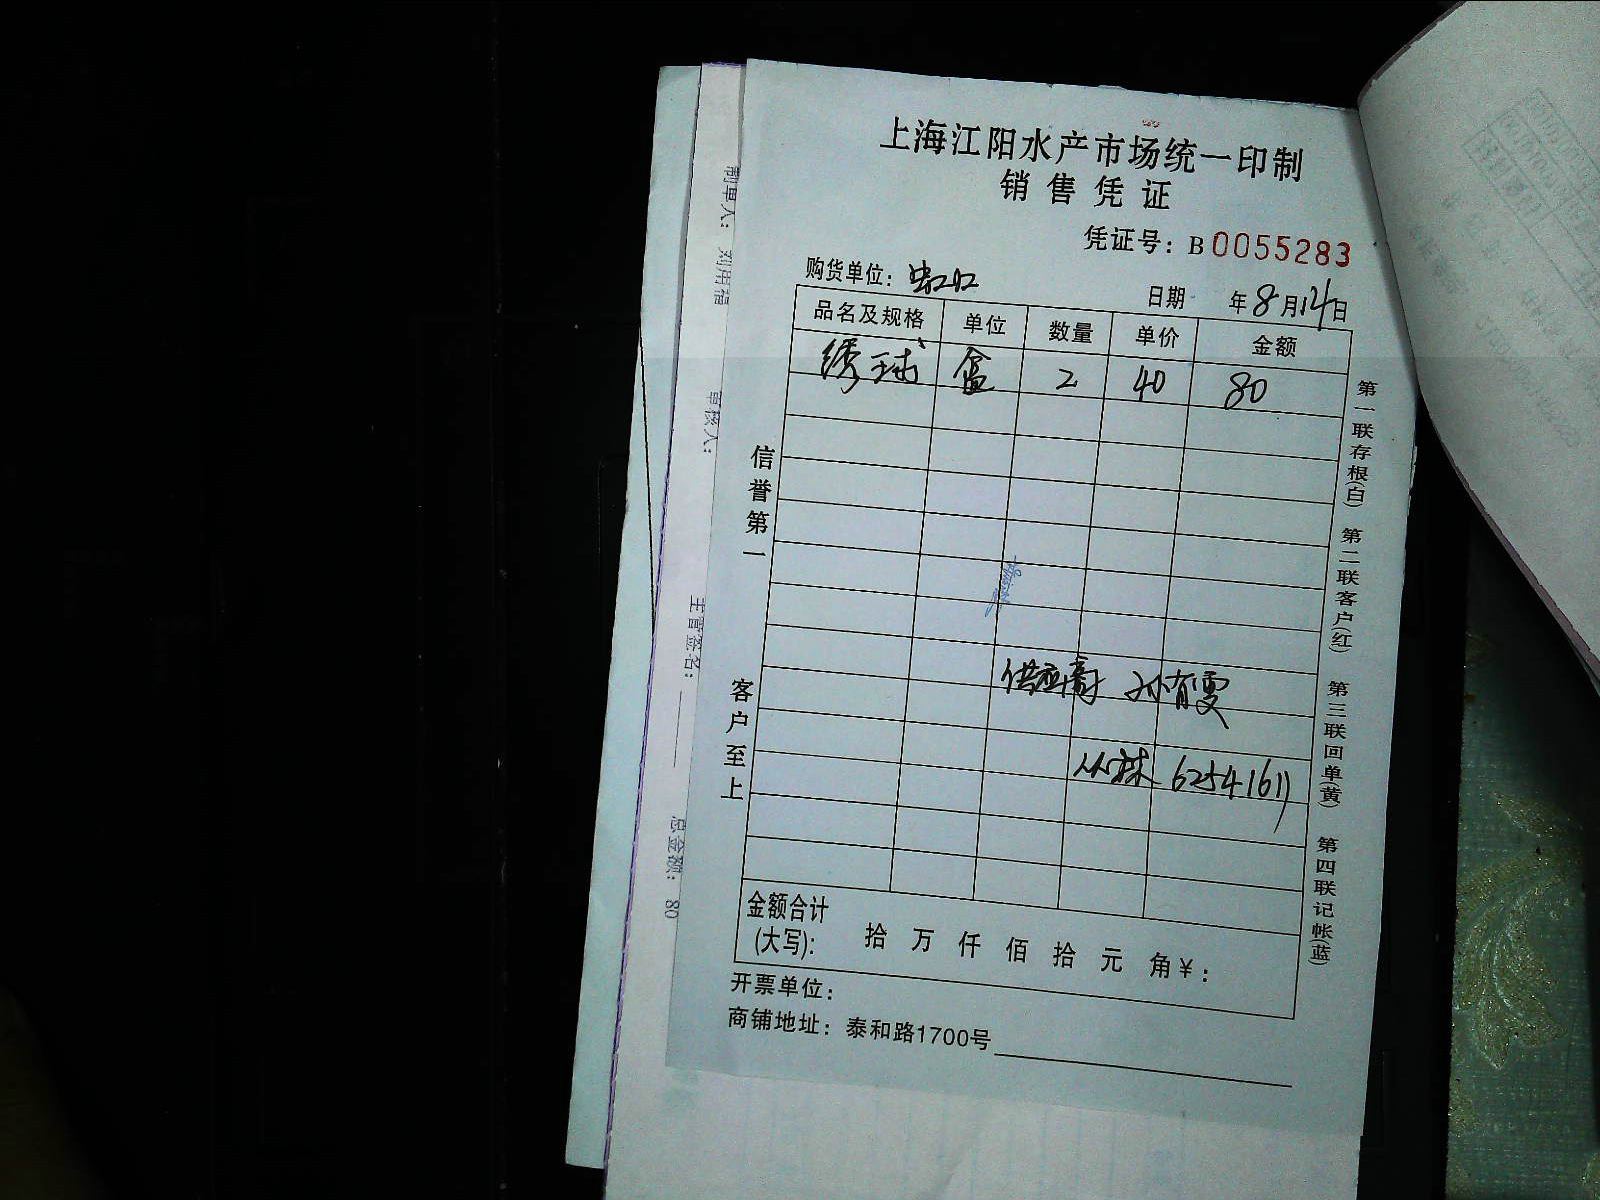 上海江阳水产市场统一印制
销售凭证
凭证号：B0055283
购货单位：虹口
日期 年8月14日
品名及规格 单位 数量 单价 金额
绣球 盒 2 40 80
信誉第一
客户至上
供应商 孙育雯
62541611
金额合计
(大写)： 拾 万 仟 佰 拾 元 角 ¥：
开票单位：
商铺地址：泰和路1700号
第一联存根(白) 第二联客户(红) 第三联回单(黄) 第四联记帐(蓝)
制单人： 刘用福
审核人：
主管签名：
总金额： 80